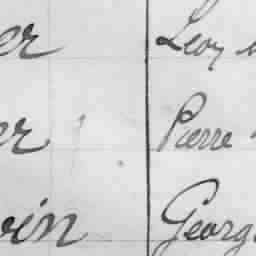 er Leon
er Pierre
vin Georg